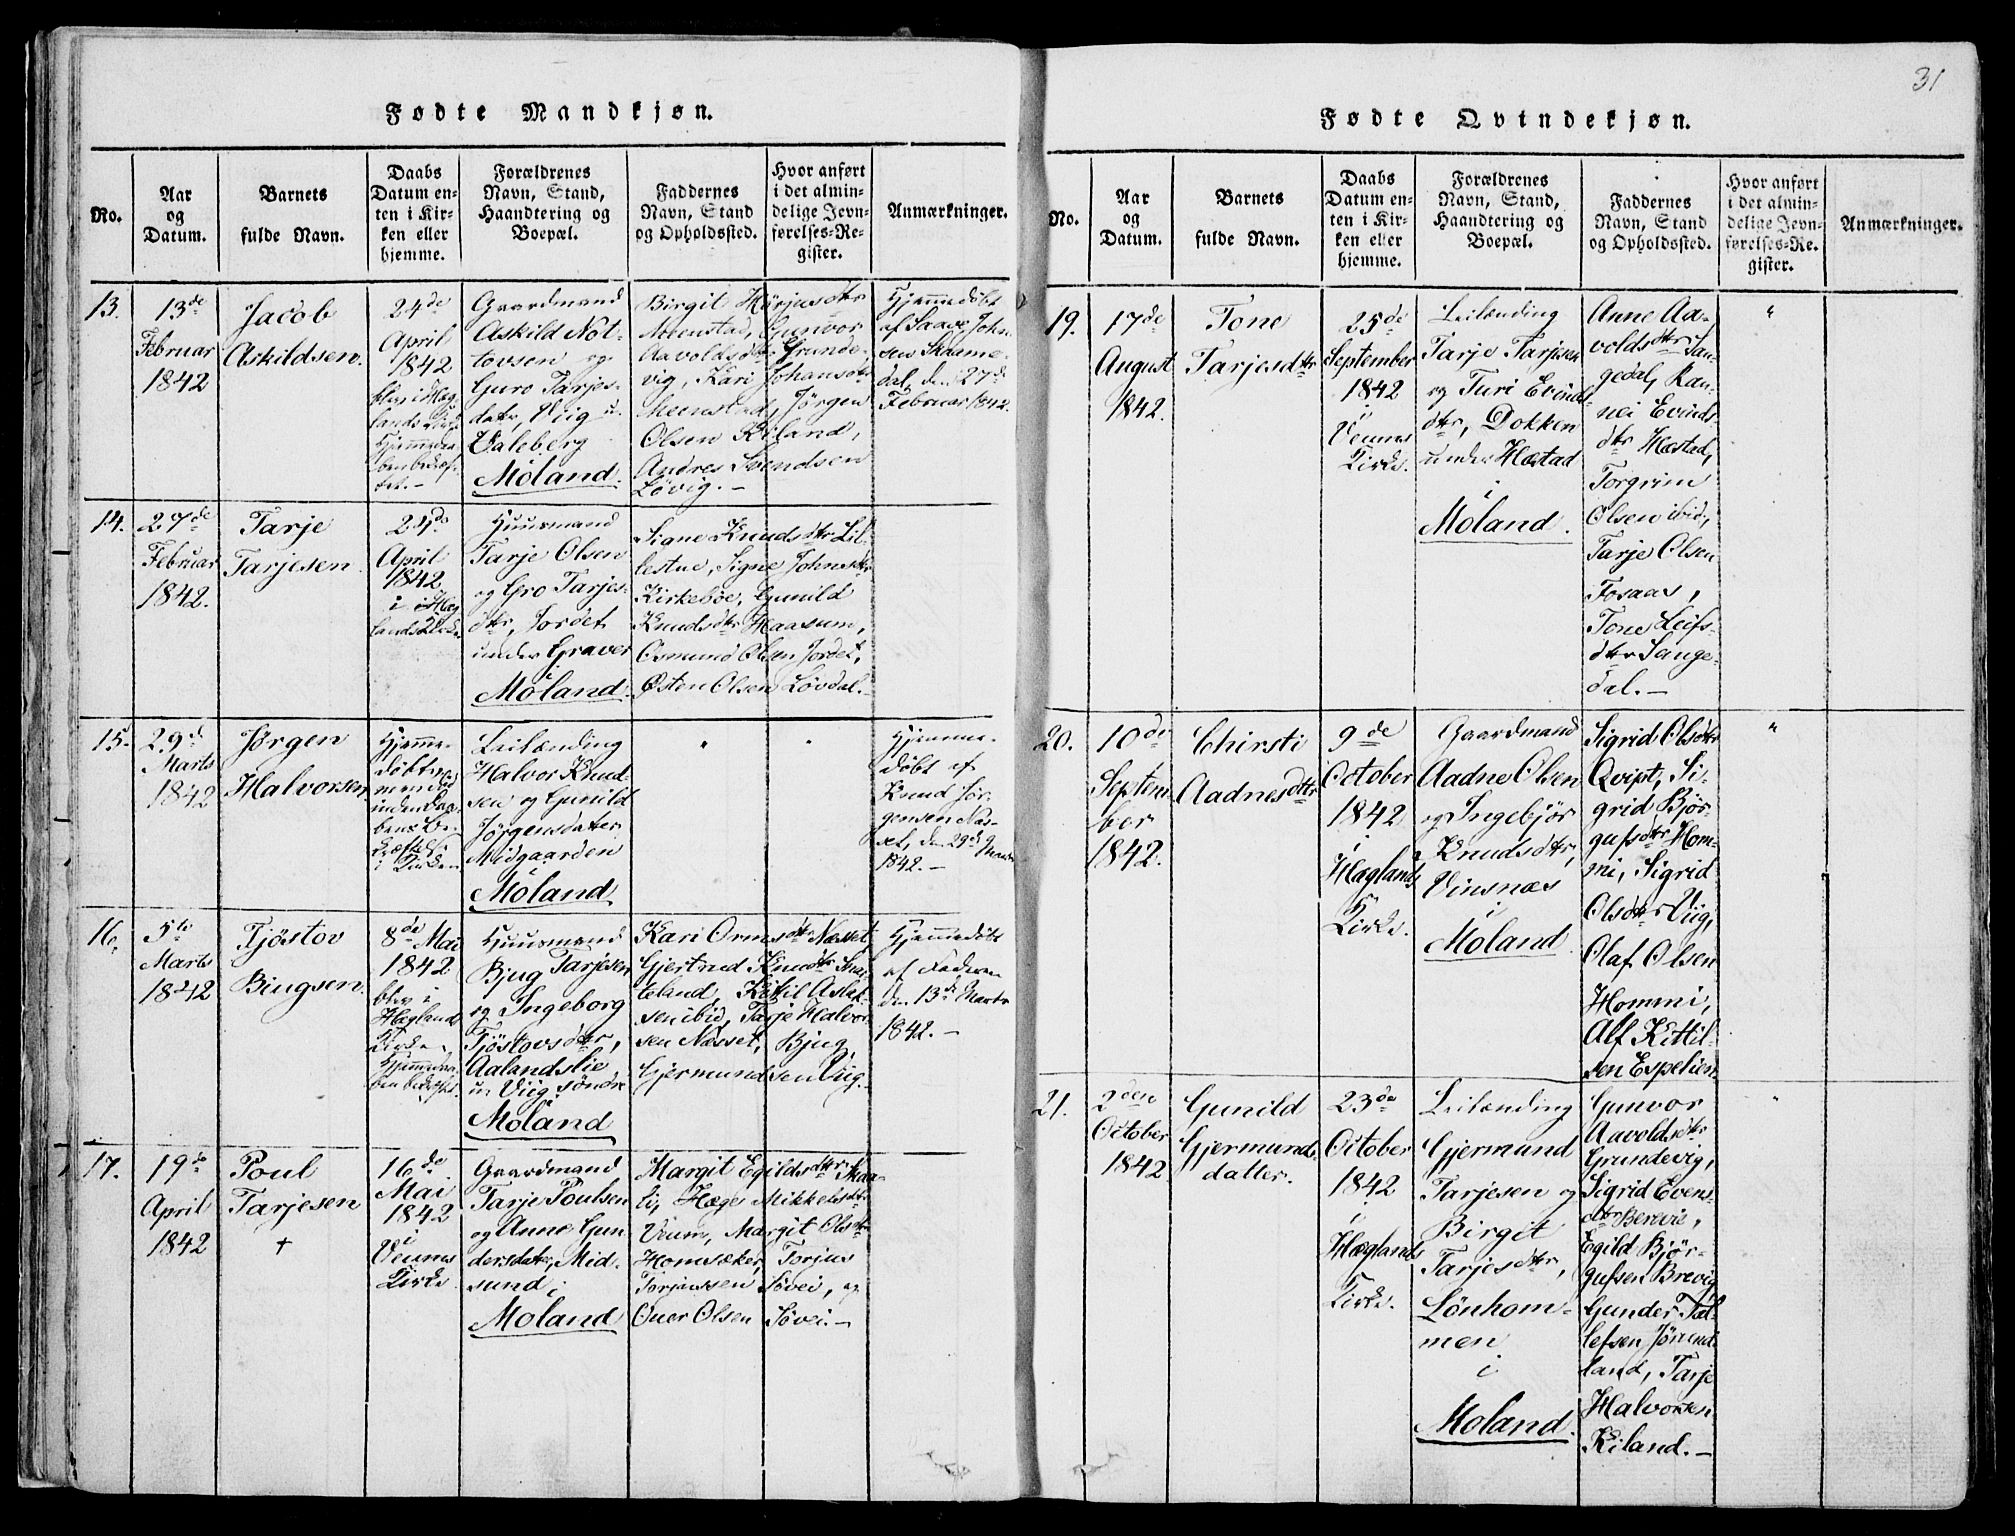 31
Fødte Mandkjøn.
No.
Aar
og
Datum.
Barnets
fulde Navn.
Daabs
Datum en-
ten i Kir-
ken eller
hjemme.
Forældrenes
Navn, Stand,
Haandtering og
Boepæl.
Faddernes
Navn, Stand
og Opholdssted.
Hvor anført
i det almin-
delige Jevn-
førelses-Re-
gister.
Anmærkninger.
13.
13de
Februar
1842
Jacob
Askildsen.
24de
April
1842
blev i Hæg-
lands
Hjemmedaa-
ben bekræf-
tet.-
Gaardmand
Askild Not-
tovsen og
Guro Tarjes-
datr, Viig u.
Valeberg
i
Moland.
Birgit
Gunvor
Aavoldsdtr Grunde-
vig, Kari Johansdtr
Jørgen
Olsen Kiland,
Andres Svendsen
Løvig.-
Hjemmedøbt
af Saave John-
sen Skaame-
dal, den 27de
Februar 1842.
14.
27de
Februar
1842.
Tarje
Tarjesen.
24de
April
1842
i Hæg-
lands Kirke.
Huusmand
Tarje Olsen
og Gro Tarjes-
dtr, Jordet
under Graver
i
Moland.
Signe Knudsdtr Lil-
lestue, Signe Johnsdtr
Kirkebøe, Gunild
Knudsdtr Haasum,
Osmund Olsen Jordet,
Østen Olsen Løvdal.-
15.
29de
Marts
1842
Jørgen
Halvorsen
Hjemme-
døbt
Leilænding
Halvor Knud-
sen og Gunild
Jørgensdatter
Midgaarden
i
Moland.
"
"
Hjemme-
døbt af
Knud Jør-
gensen Næs-
set, den 29de Marts
1842.-
16.
5te
Marts
1842
Tjøstov
Biugsen.
8de Mai
1842
blev i
Hæglands
Kirke
Hjemmedaa-
ben bekræftet.
Huusmand
Bjug Tarjesen
og Ingeborg
Tjøstovsdtr,
Aalandslie
u. Viig søndre
i
Moland
Kari Ormsdtr Næsset
Gjertrud Knudsdtr
Kittil Aslak-
sen ibid, Tarje Halvor-
sen Næsset, Bjug
Gjermundsen Viig.-
Hjemmedøbt
af Faderen
den 13de Marts
1842.-
17.
19de
April
1842
Poul
Tarjesen
+
16de
Mai
1842
i
Veums
Kirke
Gaardmand
Tarje Poulsen
og Anne Gun-
dersdatr, Mid-
sund i
Moland
Margit Egildsdtr Skaa-
li, Hæge Mikkelsdtr
Veum, Margit Olsdtr
Homsæker, Torjus
Torjussen Løvei, og
Over Olsen Løvei.-
Fødte Qvindekjøn.
No.
Aar
og
Datum.
Barnets
fulde Navn.
Daabs
Datum en-
ten i Kir-
ken eller
hjemme.
Forældrenes
Navn, Stand,
Haandtering og
Boepæl.
Faddernes
Navn, Stand
og Opholdssted.
Hvor anført
i det almin-
delige Jevn-
førelses-Re-
gister.
Anmærkninger.
19.
17de
August
1842.
Tone
Tarjesdtr
25de
September
1842
i
Veums
Kirke.
Leilænding
Tarje Tarjesen
og Turi Evinds-
dtr, Dokken
under Hæstad
i
Moland.
Anne Aa-
voldsdtr San-
gedal, Ran-
nei Evinds-
dtr Hæstad,
Torgrim
Olsen ibid,
Tarje Olsen
Fosaas,
Tone Leifs-
dtr Sange-
dal.-
"
20.
10de
Septem-
ber
1842.
Chirsti
Aadnesdtr
9de
October
1842
i
Hæglands
Kirke.
Gaardmand
Aadne Olsen
og Ingebjør
Knudsdtr,
Vinsnæs
i
Moland.
Sigrid Olsdtr
Qvipt, Si-
grid Bjør-
gufsdtr Hom-
mi, Sigrid
Olsdtr Viig,
Olaf Olsen
Hommi,
Alf Kittil-
sen Espelien.
"
21.
2den
October
1842
Gunild
Gjermunds-
datter.
23de
October
1842
i
Hæglands
Kirke.
Leilænding
Gjermund
Tarjesen og
Birgit
Tarjesdtr,
Lønhom-
men
i
Moland.
Gunvor
Aavoldsdtr
Grundevig,
Sigrid Evens-
dtr Berevie,
Egild Bjør-
gufsen Brevig,
Gunder Tal-
lefsen Jørund-
land, Tarje
Halvorsen
Kiland.-
"